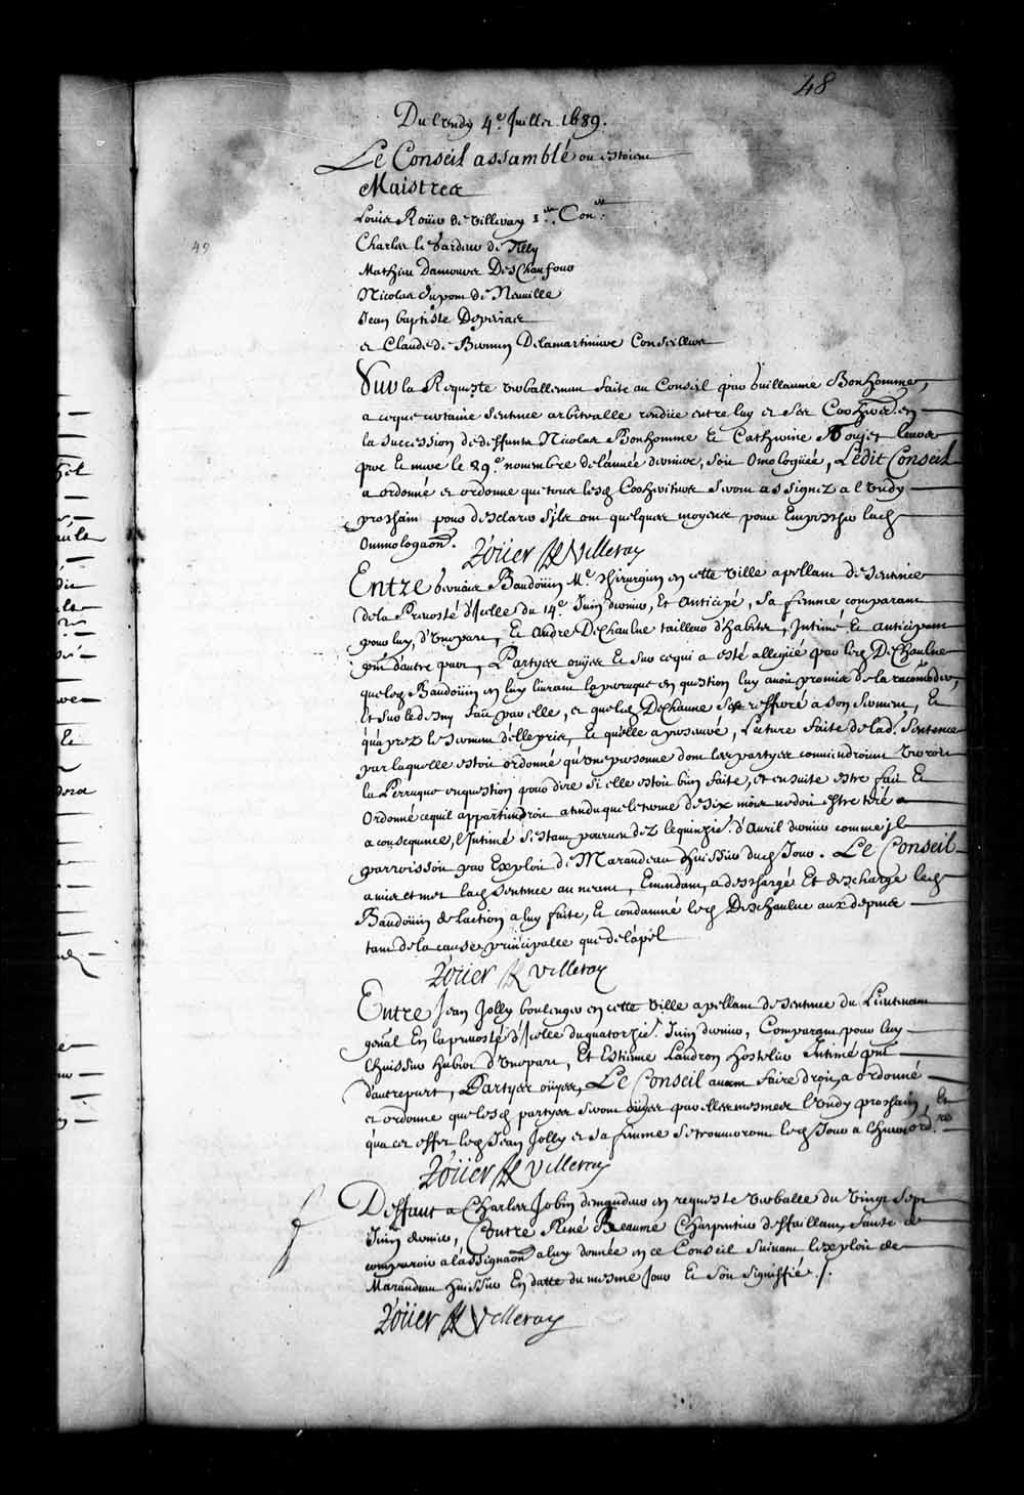 48
Du Lundy 4.e Juillet 1689.
Le Conseil assamblé ou estoient
Maistres
Louis Roüer de Villeray 1.er Con.er
Charles le Gardeur de Tilly
Mathieu Damours Deschaufour
Nicolas Dupont de Neuville
Jean baptiste Depeiras
et Claude de Bermen Delamartiniere Conseillers
Sur la Requeste verballement faite au Conseil par Guillaume Bonhomme,
a ceque certaine Sentence arbitralle rendüe entre luy et Ses Coheritiers en
la succession de deffunts Nicolas Bonhomme et Catherine Goujet leurs
pere et mere le 29.e novembre de l'année derniere, soit omologüée, Ledit Conseil
a ordonné et ordonne que tous lesd Coheritiers seront assignez a Lundy
prochain pour desclarer s'ils ont quelques moyens pour Empescher lad
Ommologaon. Roüer de Villeray
Entre Gervais Baudoüin M.e chirurgien en cette ville apellant de Sentence
de la Prevosté d'Icelle du 14.e Juin dernier, Et anticipé, sa femme comparant
pour luy, d'vnepart, Et André Dechaulne tailleur d'habits, Intimé et anticipant
pnt d'autre part, Partyes ouyes et sur cequi a esté allegüé par led DeChaulne
queled Baudoüin en luy livrant la peruque en question luy avoit promis de la racomoder,
Et sur le deny fait par elle, et queled Dechaune s'est refferé a son serment, Et
qu'aprez le serment d'elle pris, Et qu'elle a perseveré, Lecture faite de lad. Sentence
par laquelle estoit ordonné qu'vne personne dont les partyes conviendroient verroit
la Perruque en question pour dire si elle estoit bien faite, et en suite estre fait Et
Ordonné cequil appartiendroit atendu que le terme de six mois ne doit estre tiré a
a consequence, l'Intimé s'estant pourveu dez le quinzie. d'Avril dernier comme il
parroissoit par Exploit de Marandeau Huissier dud Jour. Le Conseil
a mis et met lad Sentence au neant, Emendant, a deschargé Et descharge led
Baudoüin de l'action a luy faite, Et condamné led Deschaulne aux depens
tant de la cause principalle que de l'apel
Roüer de Villeray
Entre Jean Jolly boulenger en cette ville apellant de sentence du Lieutenant
genal En la prevosté d'Icelle du quatorzie. Juin dernier, Comparant pour luy
L'huissier Hubert d'vnepart, Et Estienne Landron Hostelier Intimé pnt
d'autrepart, Partyes oüyes, Le Conseil avant faire droit, a ordonné
et ordonne que lesd partyes seront oüyes par elles mesmes Lundy prochain, Et
qu'a cet effet led Jean Jolly et sa femme se trouveront led Jour a l'heure ord.re
Roüer de Villeray
Deffaut a Charles Jobin demandeur en requeste verballe du vingt Sept
Juin dernier, Contre René Reaume Charpentier deffaillant, faute de
comparoir a l'assignaon a luy donnée en ce Conseil suivant l'exploit de
Marandeau huissier En datte du mesme Jour Et soit signiffié ./.
Roüer de Villeray
49